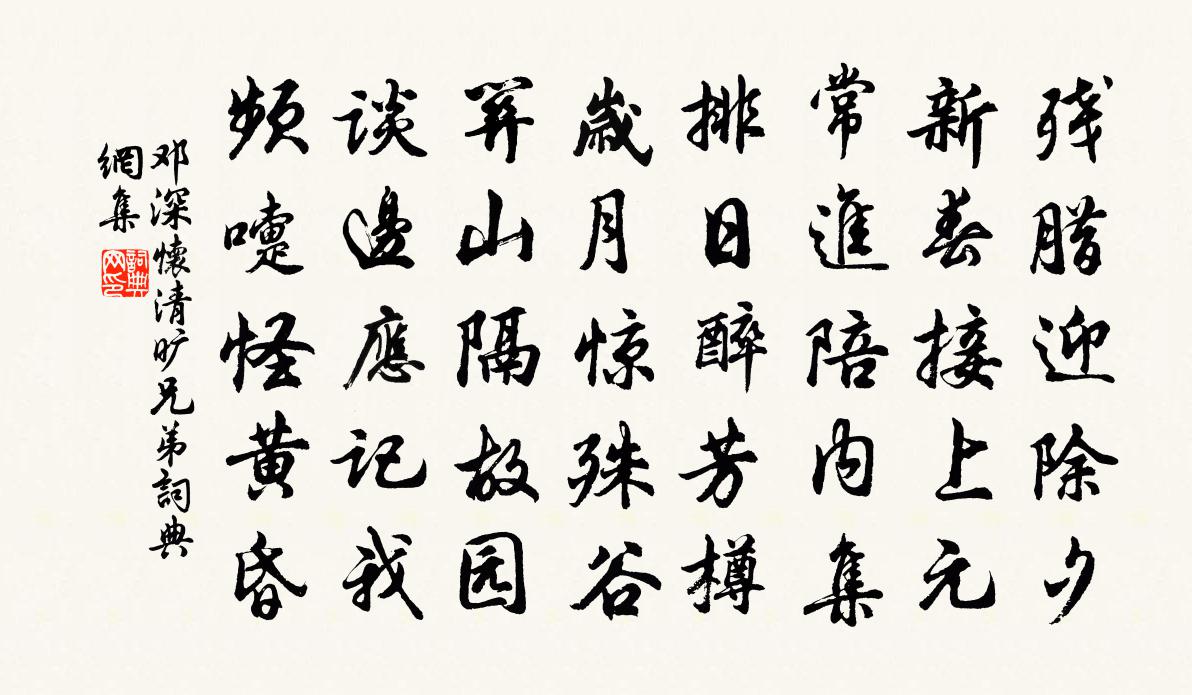 残腊迎除夕
新春接上元
常進陪内集
排日醉芳樽
歲月惊殊谷
關山隔故园
谈邊應记我
频嚏怪黄昏
邓深懷清旷兄弟詞典
網集
詞典
网印